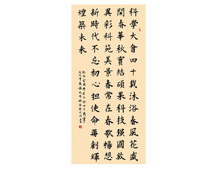 科學大會四十載沐浴春風花盛
開春華秋實結碩果科技強國啟
異彩科苑美景春常在春歌暢想
新時代不忘初心担使命創輝
煌築未來